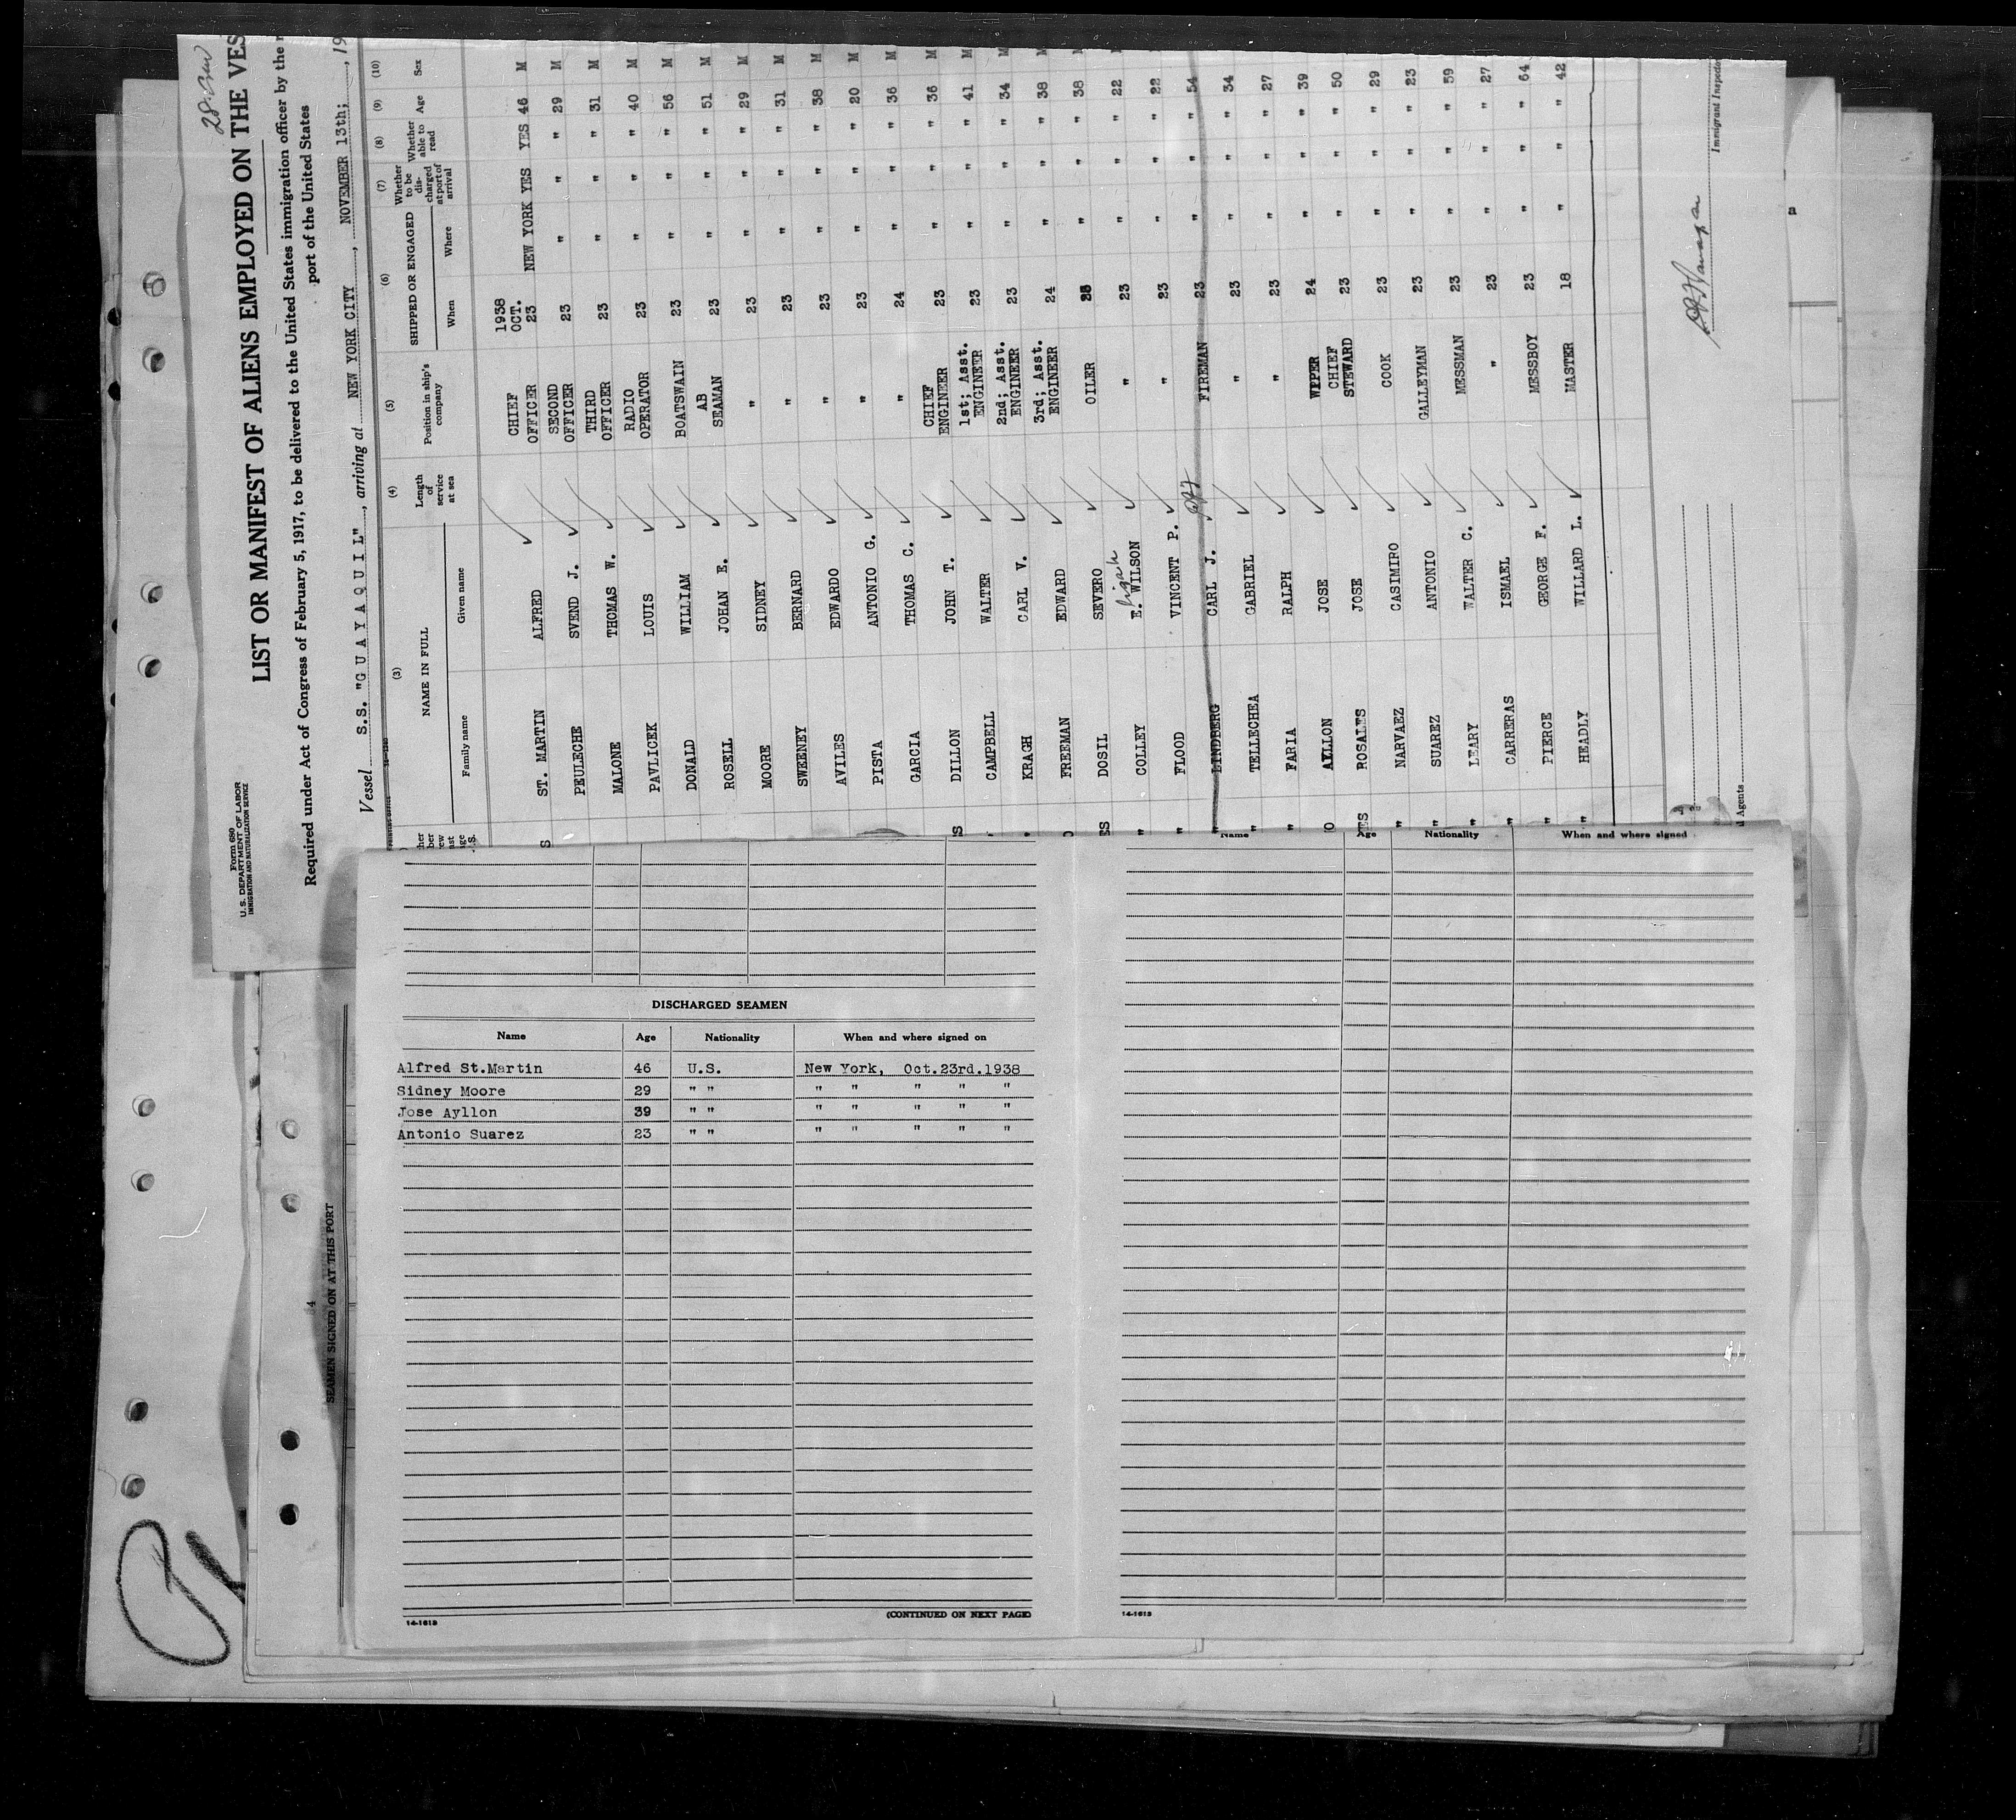 Form 680
U. S. DEPARTMENT OF LABOR
IMMIGRATION AND NATURALIZATION SERVICE
LIST OR MANIFEST OF ALIENS EMPLOYED ON THE VES
Required under Act of Congress of February 5, 1917, to be delivered to the United States immigration officer by the
port of the United States
Vessel S.S. "G U A Y A Q U I L", arriving at NEW YORK CITY, NOVEMBER 13th;, 19
(3) (4) (5) (6) (7) (8) (9) (10)
NAME IN FULL Length of service at sea Position in ship's company SHIPPED OR ENGAGED Whether to be discharged at port of arrival Whether able to read Age Sex
Family name Given name When Where
1938
ST. MARTIN ALFRED CHIEF OFFICER OCT. 23 NEW YORK YES YES 46 M
PEULECHE SVEND J. SECOND OFFICER 23 " " " 29 M
MALONE THOMAS W. THIRD OFFICER 23 " " " 31 M
PAVLICEK LOUIS RADIO OPERATOR 23 " " " 40 M
DONALD WILLIAM BOATSWAIN 23 " " " 56 M
ROSELL JOHAN E. AB SEAMAN 23 " " " 51 M
MOORE SIDNEY " 23 " " " 29 M
SWEENEY BERNARD " 23 " " " 31 M
AVILES EDWARDO " 23 " " " 38 M
PISTA ANTONIO G. " 23 " " " 20 M
GARCIA THOMAS C. " 24 " " " 36 M
DILLON JOHN T. CHIEF ENGINEER 23 " " " 36 M
CAMPBELL WALTER 1st; Asst. ENGINEER 23 " " " 41 M
KRAGH CARL V. 2nd; Asst. ENGINEER 23 " " " 34 M
FREEMAN EDWARD 3rd; Asst. ENGINEER 24 " " " 38 M
DOSIL SEVERO OILER " " " 38
COLLEY E. WILSON " 23 " " " 22
FLOOD VINCENT P. " 23 " " " 22
LINDBERG CARL J. FIREMAN 23 " " " 54
TELLECHEA GABRIEL " 23 " " " 34
FARIA RALPH " 23 " " " 27
AYLLON JOSE WIPER 24 " " " 39
ROSALES JOSE CHIEF STEWARD 23 " " " 50
NARVAEZ CASIMIRO COOK 23 " " " 29
SUAREZ ANTONIO GALLEYMAN 23 " " " 23
LEARY WALTER C. MESSMAN 23 " " " 59
CARRERAS ISMAEL " 23 " " " 27
PIERCE GEORGE F. MESSBOY 23 " " " 64
HEADLY WILLARD L. MASTER 18 " " " 42
Immigrant Inspecto
Agents
4
SEAMEN SIGNED ON AT THIS PORT
DISCHARGED SEAMEN
Name Age Nationality When and where signed on
Alfred St.Martin 46 U.S. New York, Oct.23rd.1938
Sidney Moore 29 " " " " " " "
Jose Ayllon 39 " " " " " " "
Antonio Suarez 23 " " " " " " "
14-1613 (CONTINUED ON NEXT PAGE)
Name Age Nationality When and where signed
14-1613